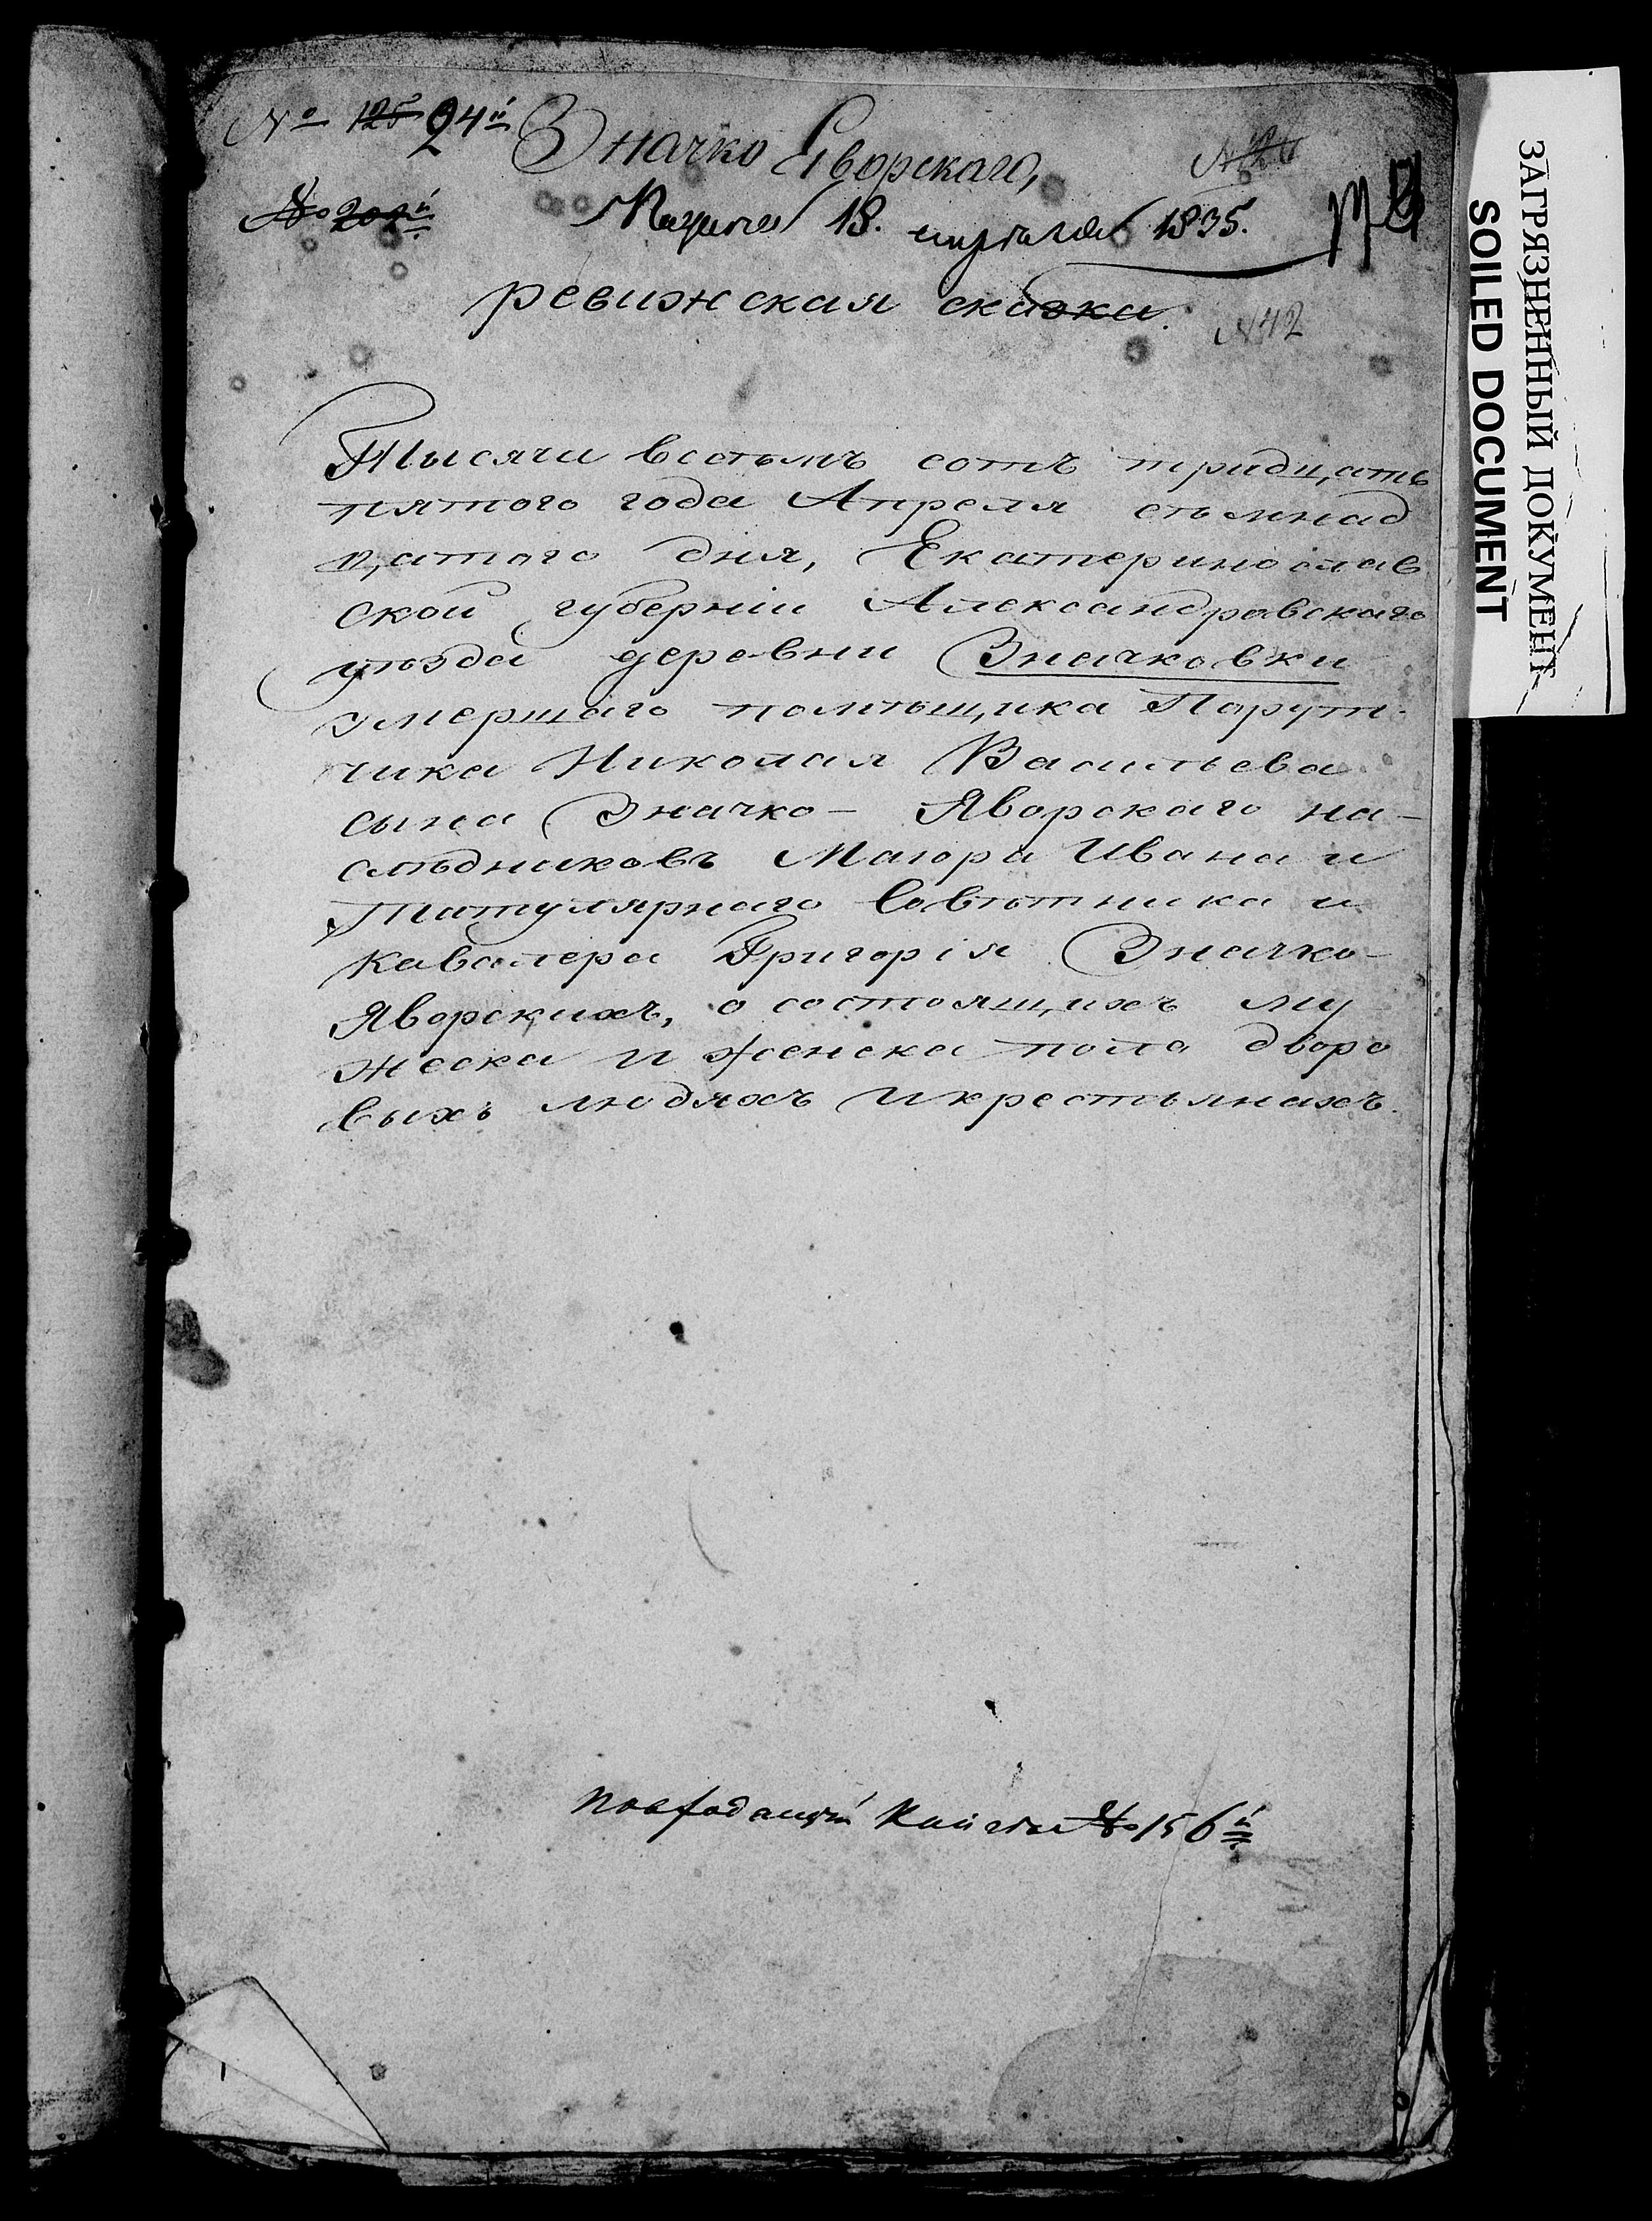 № 125 94й
Значко Яворскаго,
№ 202й
18. апреля 1835.
ревижская сказка.
N 42
Тысячи восемъ сотъ тридцать
пятого года Апреля семнад
цатого дня, Екатеринослав
ской губерніи Александровскаго
уѣзда деревни Значковки
умершаго помѣщика Порут-
чика Николая Васильева
сына Значко- Яворскаго на-
слѣдниковъ Маіора Ивана и
Титулярнаго Совѣтника и
Кавалера Григорія Значко-
Яворскихъ, о состоящихъ му
жеска и женска пола дворо
выхъ людяхъ и крестьянахъ.
№ 156й
ЗАГРЯЗНЕННЫЙ ДОКУМЕНТ
SOILED DOCUMENT